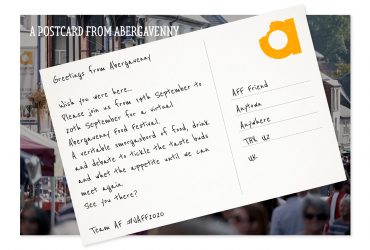 A POSTCARD FROM ABERGAVENNY
Greetings from Abergavenny
Wish you were here...
Please join us from 14th September to
20th September for a virtual
Abergavenny Food Festival.
A veritable smorgasbord of food, drink
and debate to tickle the taste buds
and whet the appetite until we can
meet again.
See you there?
Team AF #VAFF2020
AFF Friend
Anytown
Anywhere
TH1 U2
UK